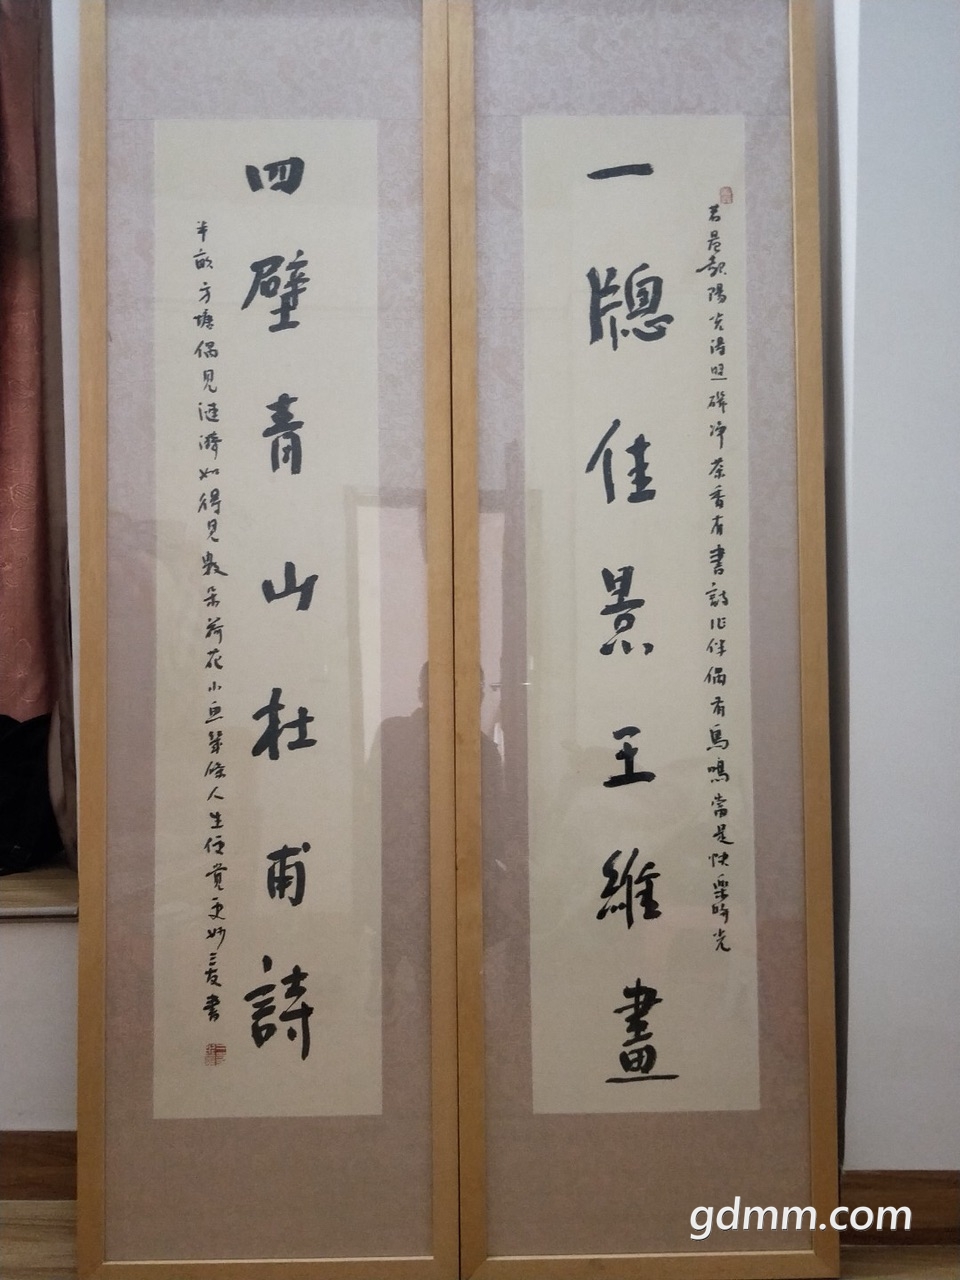 一牕佳景王維畫
若是朝陽光滿照磚净茶香有書詩作伴偶有鳥鳴當是快樂時光
四壁青山杜甫詩
半畝方塘偶見漣漪如得見數朵荷花小魚幾條人生便覺更妙三友書
gdmm.com